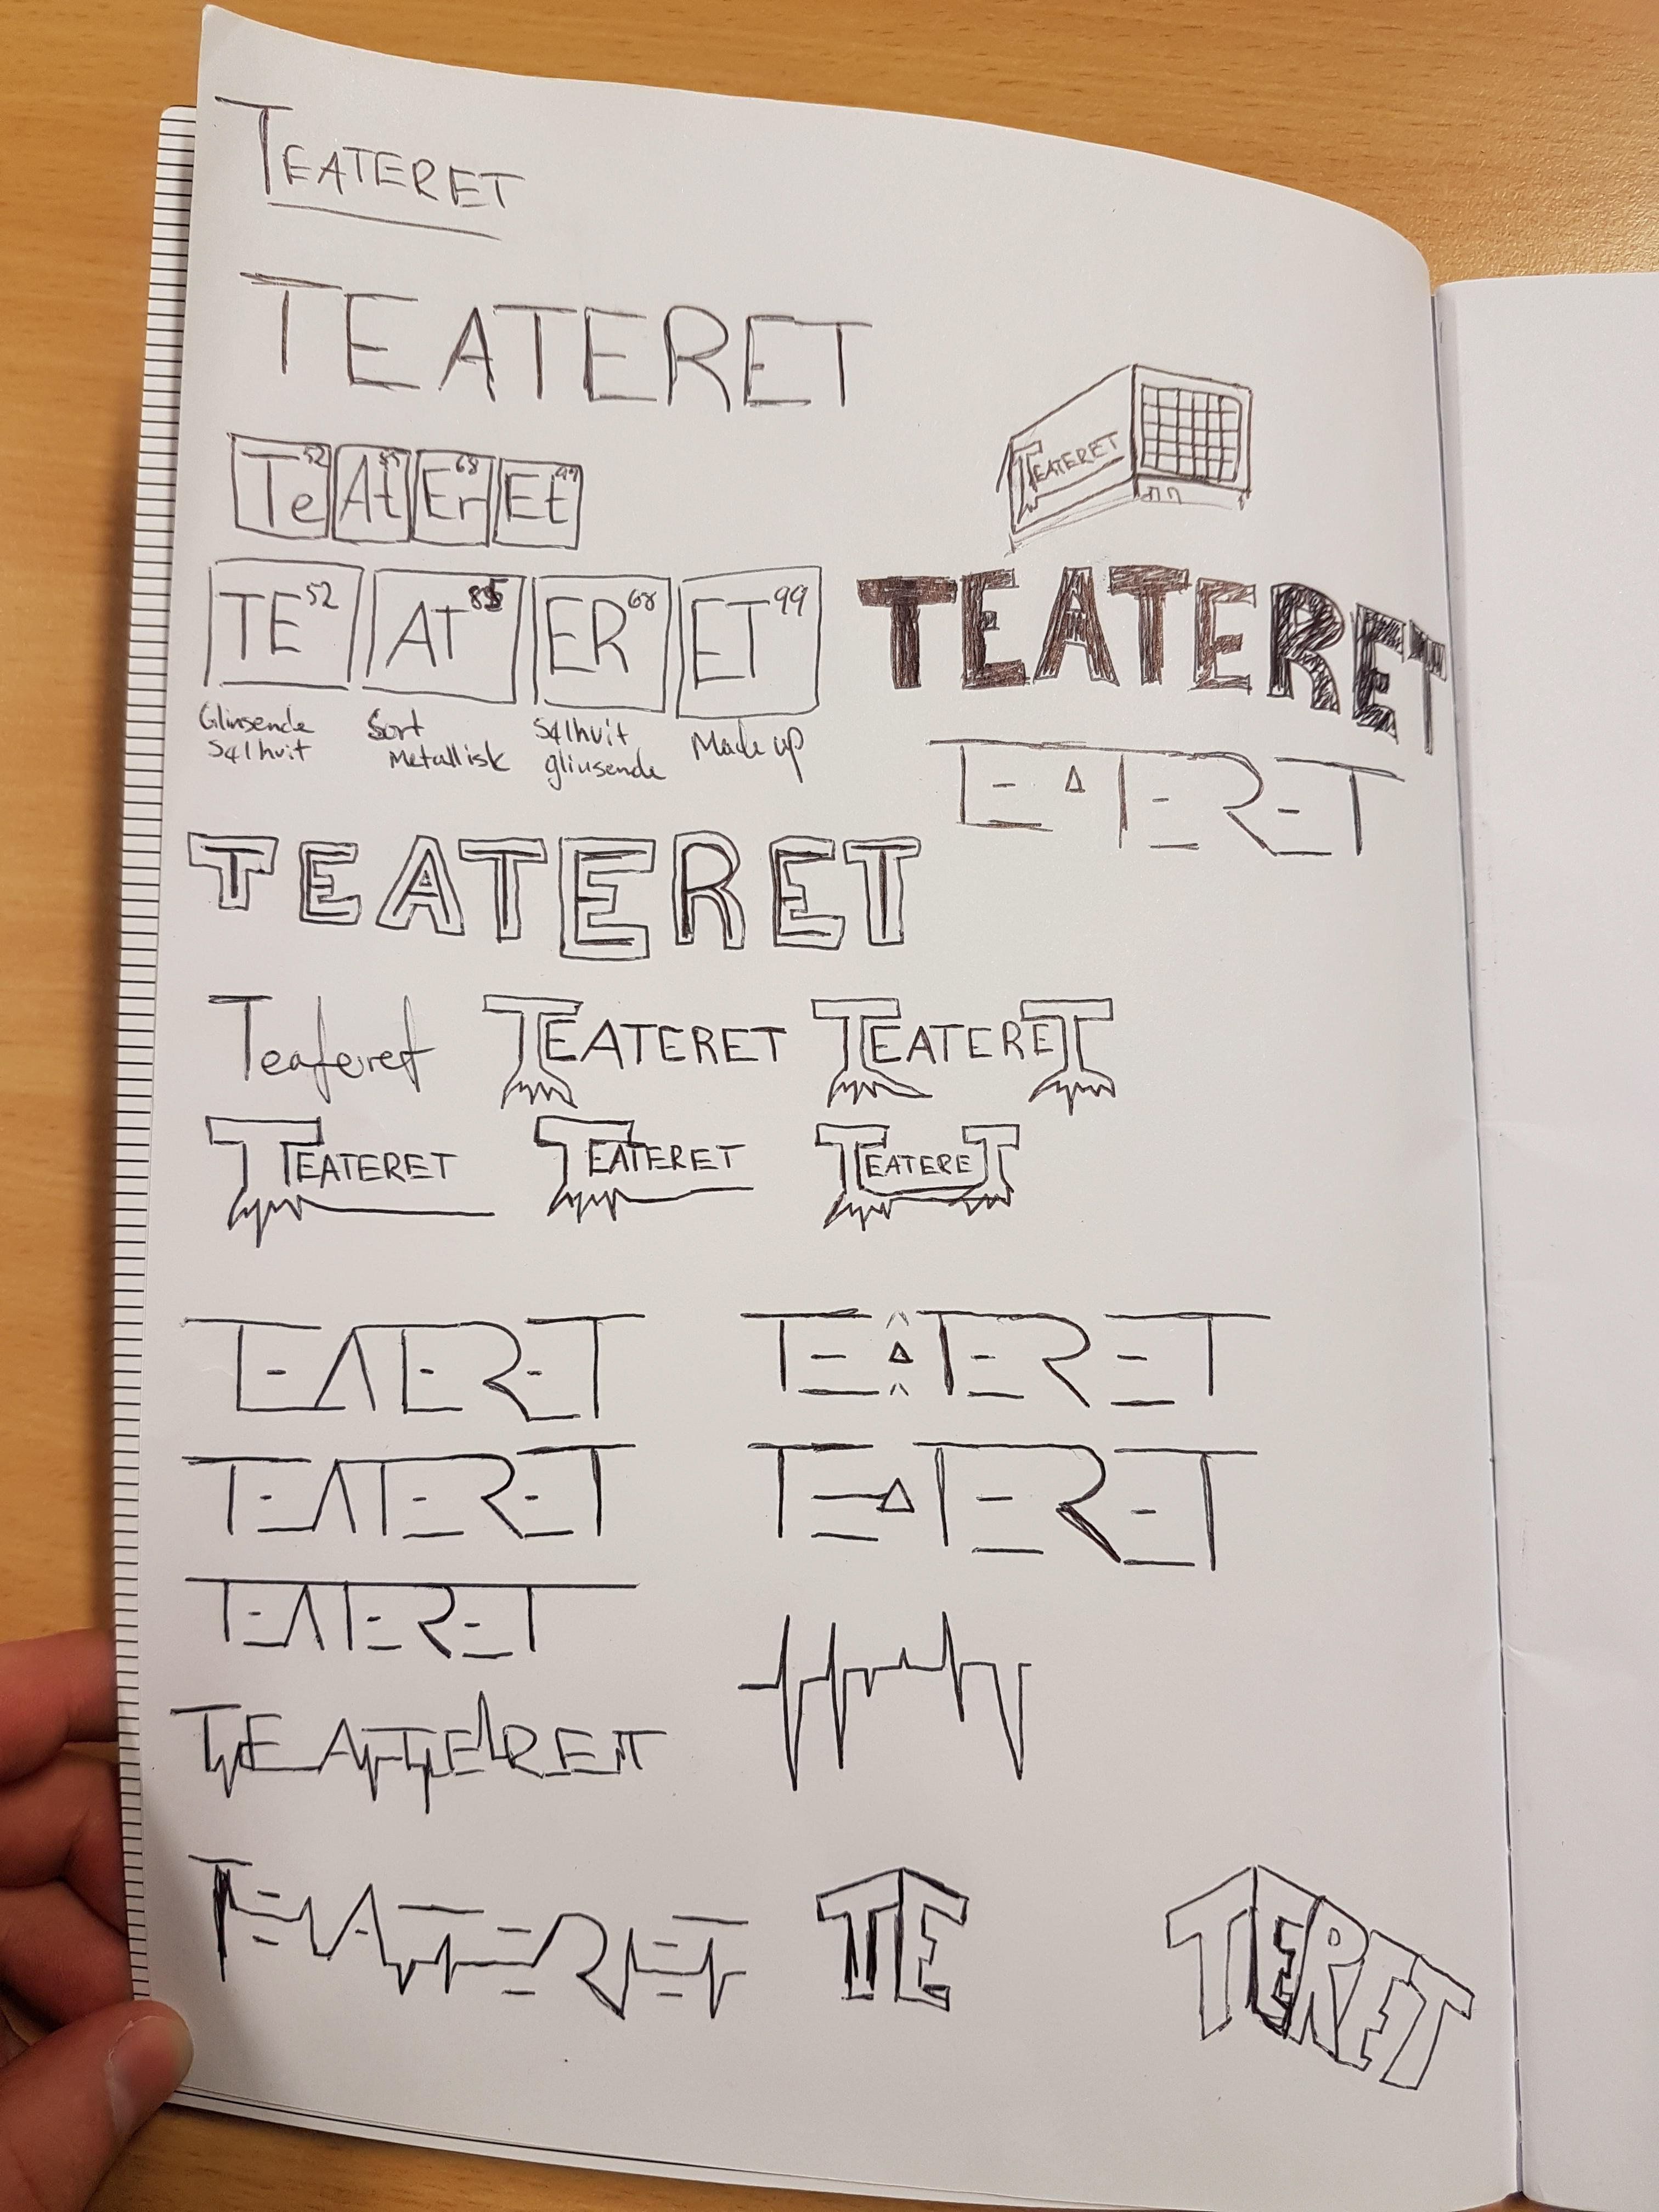 TEATERET
TEATERET
Te52 At85 Er68 Et99
TEATERET
TE52 AT85 ER68 ET99
TEATERET
Glinsende Sølhvit
Sort Metallisk
Sølhvit glinsende
Made up
TEATERET
TEATERET
Teateret TEATERET TEATERET
TEATERET TEATERET TEATERET
TEATERET TEATERET
TEATERET TEATERET
TEATERET
TEATERET
TEATERET TE TERET